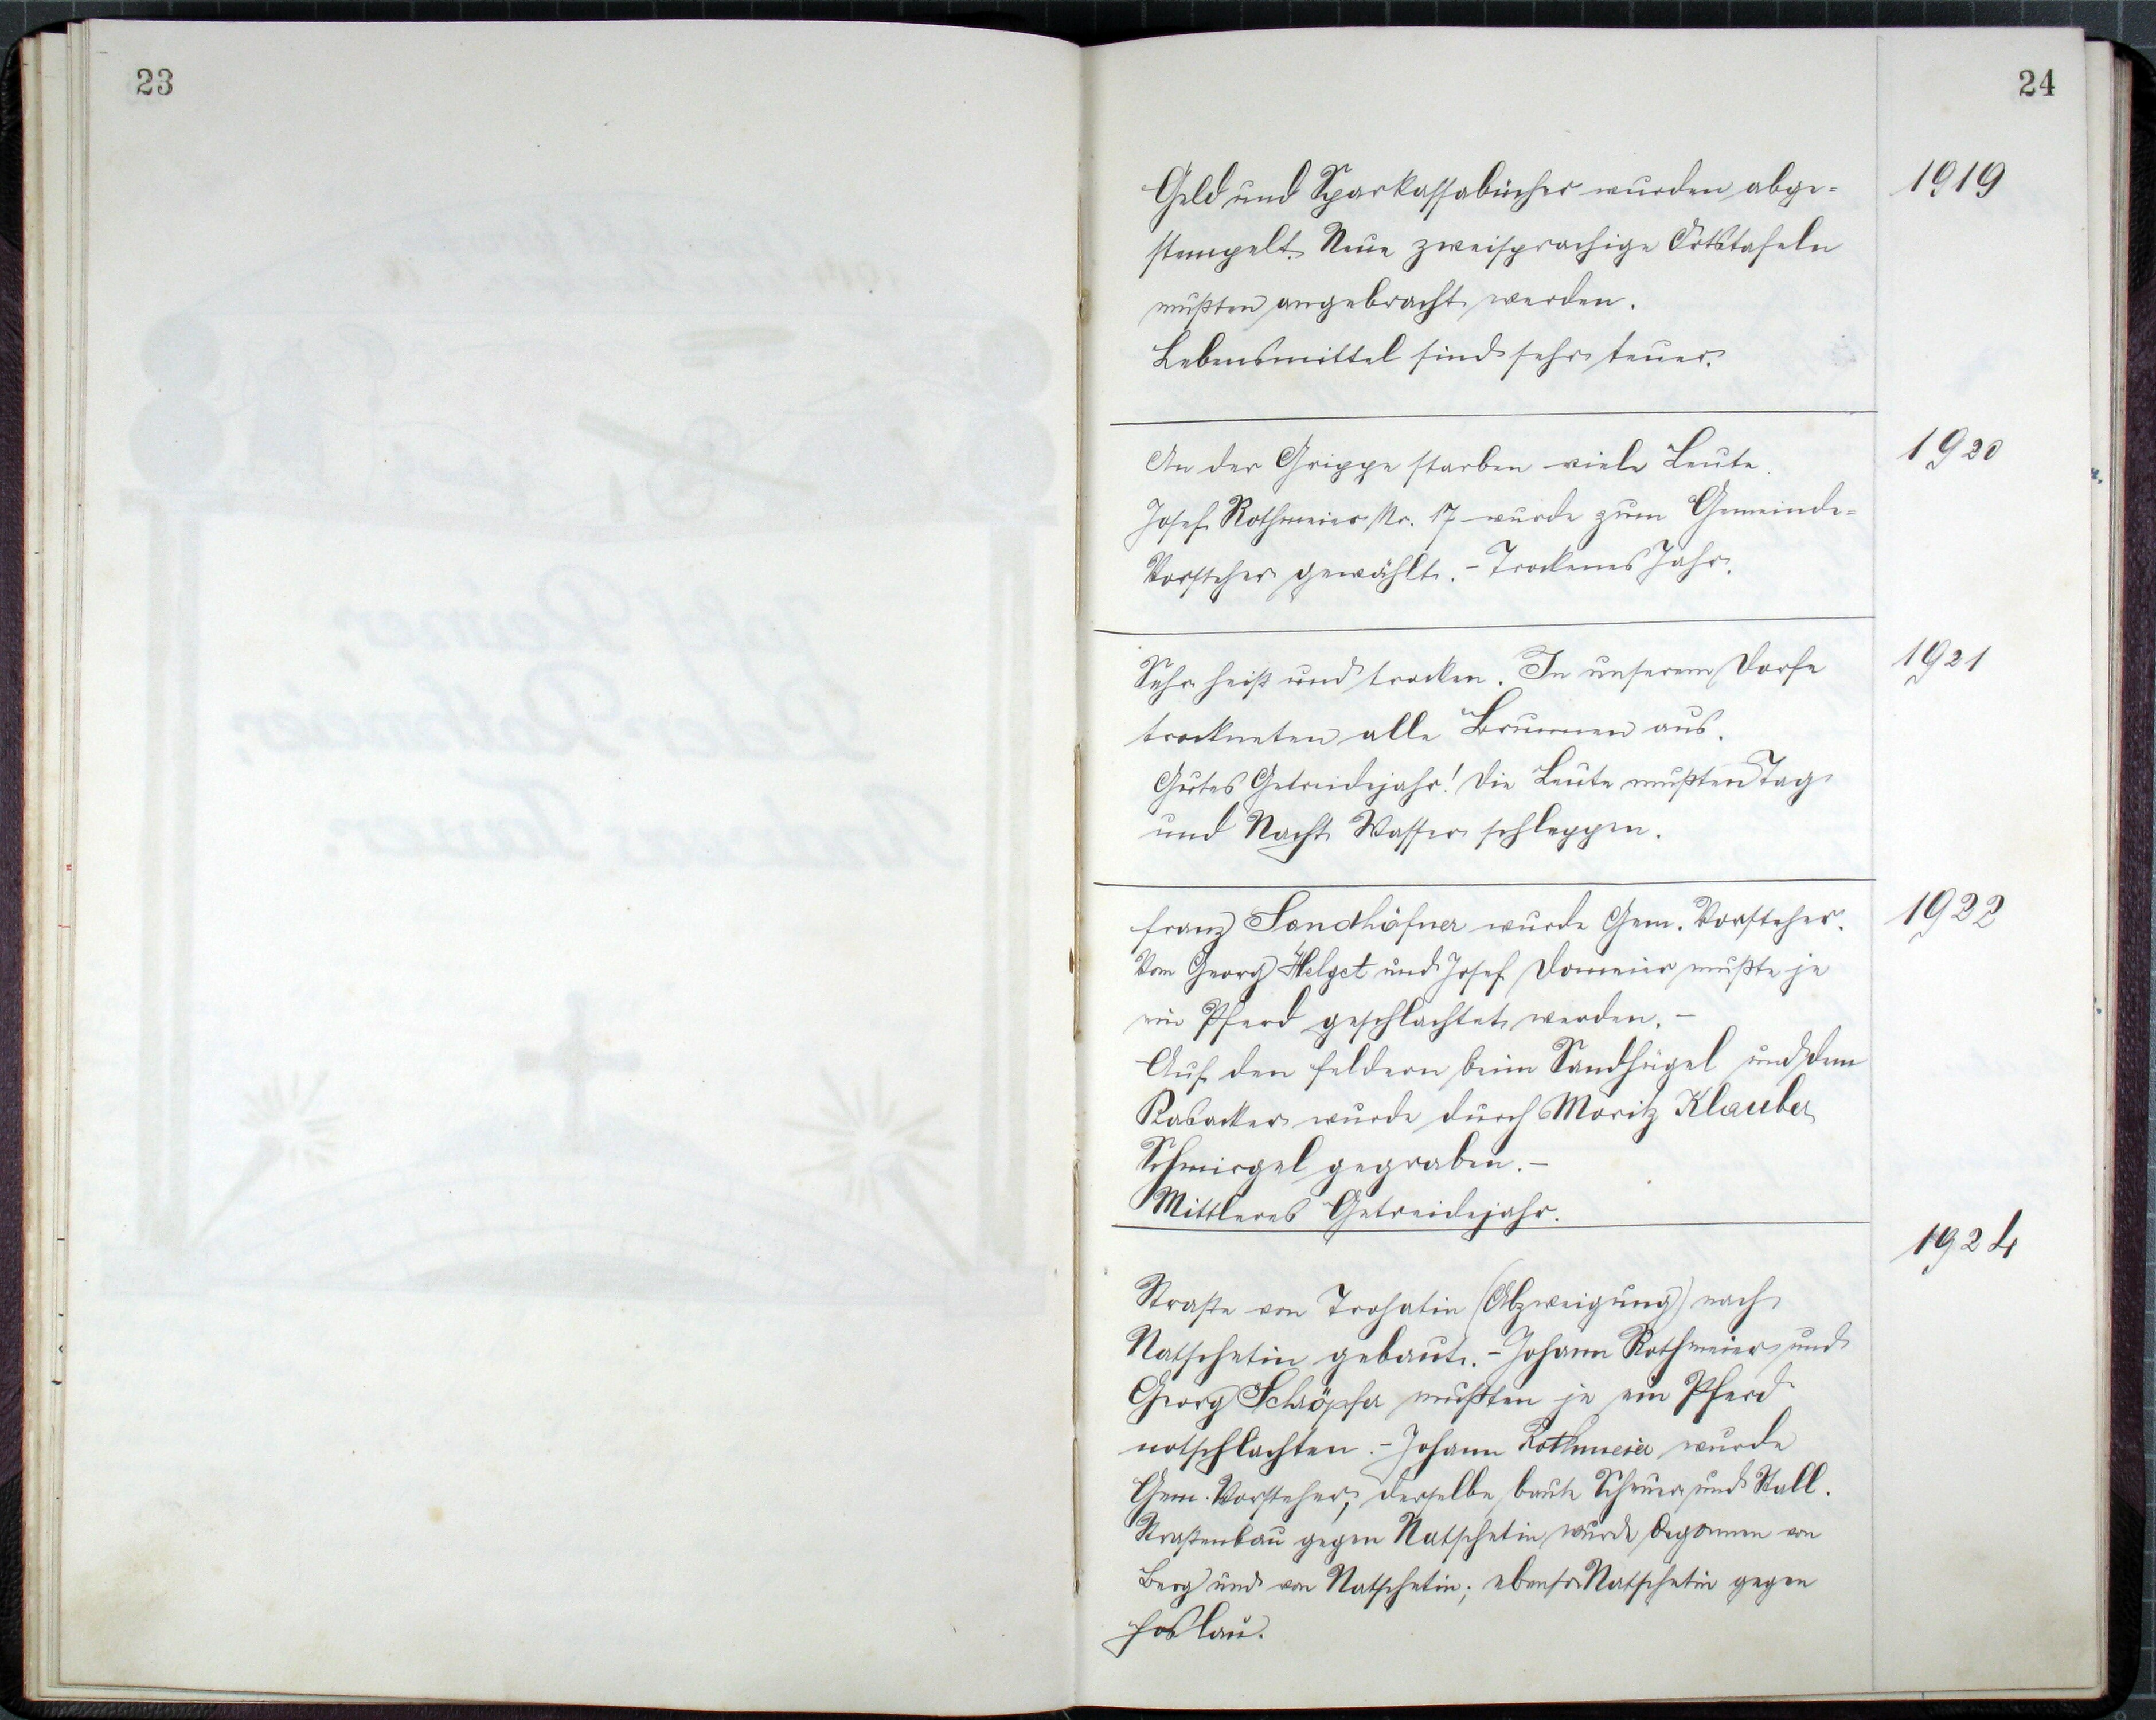 23
24
Geld und Sparkassabücher wurden abge=
1919
stempelt. Neue zweisprachige Ortstafeln
mußten angebracht werden.
Lebensmittel sind sehr teuer.
An der Grippe starben viele Leute.
1920
Josef Rothmeier Nr. 17 wurde zum Gemeinde=
Vorsteher gewählt. - Trockenes Jahr.
Sehr heiß und trocken. In unserem Dorfe
1921
trockneten alle Brunnen aus.
Gutes Getreidejahr! Die Leute mußten Tag
und Nacht Wasser schleppen.
Franz Sandhöfner wurde Gem. Vorsteher.
1922
Vom Georg Helget und Josef Domeier mußte je
ein Pferd geschlachtet werden. -
Auf den Feldern beim Sandhügel und dem
Rabacker wurde durch Moritz Klauber
Schmirgel gegraben. -
Mittleres Getreidejahr.
1924
Straße von Trohatin (Abzweigung) nach
Natschetin gebaut. - Johann Rothmeier und
Georg Schröpfer mußten je ein Pferd
notschlachten. - Johann Rothmeier wurde
Gem. Vorsteher; derselbe baute Scheuer und Stall.
Straßenbau gegen Natschetin wurde begonnen von
Berg und von Natschetin; ebenso Natschetin gegen
Hoslau.